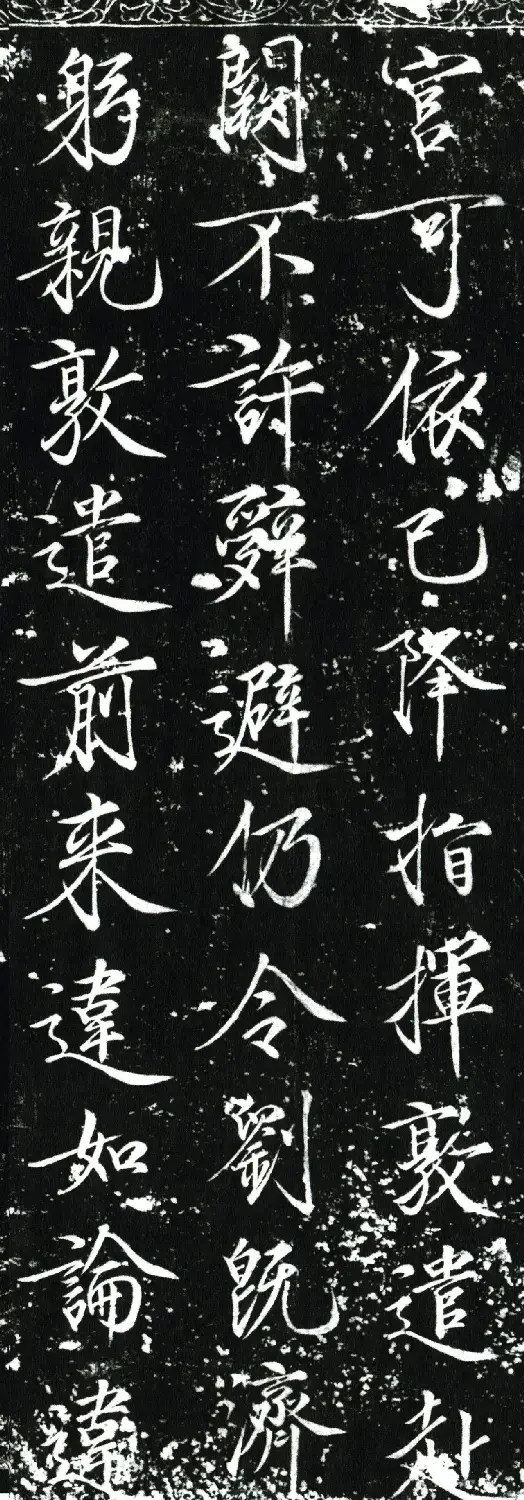 官可依已降指揮敦遣赴
闕不許辭避仍令劉既濟
躬親敦遣前来違如論違